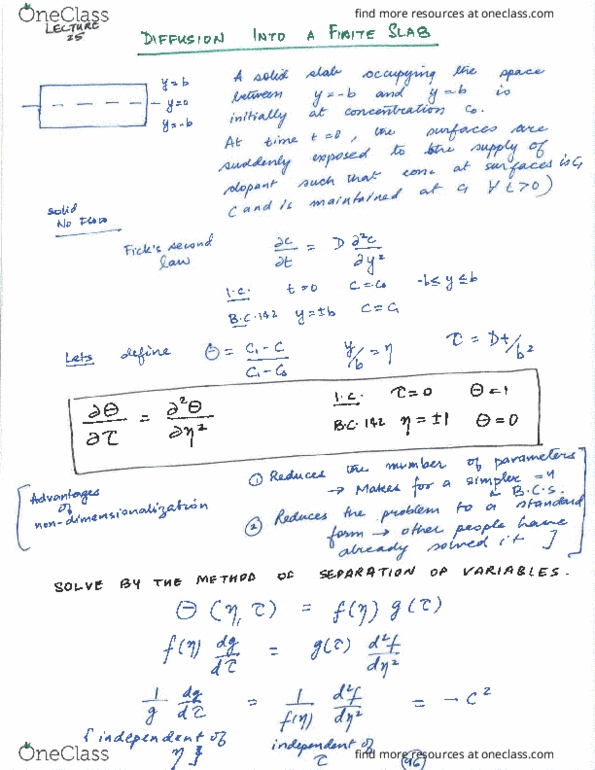 OneClass
find more resources at oneclass.com
LECTURE
25
DIFFUSION INTO A FINITE SLAB
y=b
y=0
y=-b
A solid slab occupying the space
between y=-b and y=b is
initially at concentration C₀.
At time t=0, the surfaces are
suddenly exposed to the supply of
dopant such that conc at surfaces is C₁
C and is maintained at C₁ ∀ t>0)
Solid
No Flow
Fick's second
law
∂c/∂t = D ∂²c/∂y²
I.C. t=0 C=C₀ -b≤y≤b
B.C.1&2 y=±b C=C₁
Lets define Θ = C₁-C/C₁-C₀ y/b = η τ = Dt/b²
∂Θ/∂τ = ∂²Θ/∂η²
I.C. τ=0 Θ=1
B.C. 1&2 η=±1 Θ=0
[Advantages
of
non-dimensionalization
① Reduces the number of parameters
→ Makes for a simpler =n
& B.C.S.
② Reduces the problem to a standard
form → other people have
already solved it ]
SOLVE BY THE METHOD OF SEPARATION OF VARIABLES.
Θ (η, τ) = f(η) g(τ)
f(η) dg/dτ = g(τ) d²f/dη²
1/g dg/dτ = 1/f(η) d²f/dη² = -C²
{independent of
η}
independent of
τ
96
OneClass
find more resources at oneclass.com